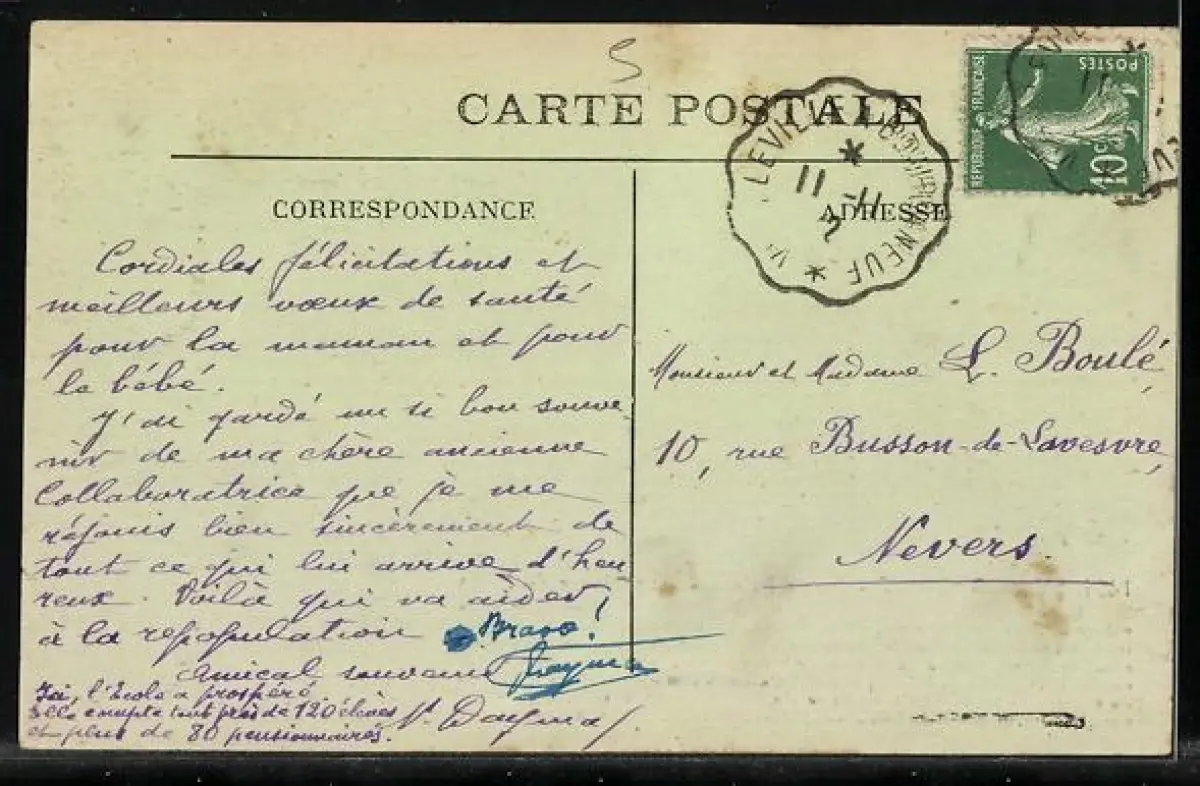 S
CARTE POSTALE
POSTES
REPUBLIQUE FRANÇAISE
10c
LEVIEUX
11
11
CORRESPONDANCE
ADRESSE
Cordiales félicitations et
meilleurs vœux de santé
pour la maman et pour
le bébé.
J'ai gardé un si bon souve
nir de ma chère ancienne
Collaboratrice que je me
réjouis bien sincèrement de
tout ce qui lui arrive d'heu
reux. Voilà qui va aider
à la repopulation Bravo!
Amical souvenir
Ici, l'Ecole a prospéré
elle compte tout près de 120 élèves
et plus de 80 pensionnaires.
Monsieur et Madame L. Boulé
10, rue Busson-de-Lavesvre,
Nevers.